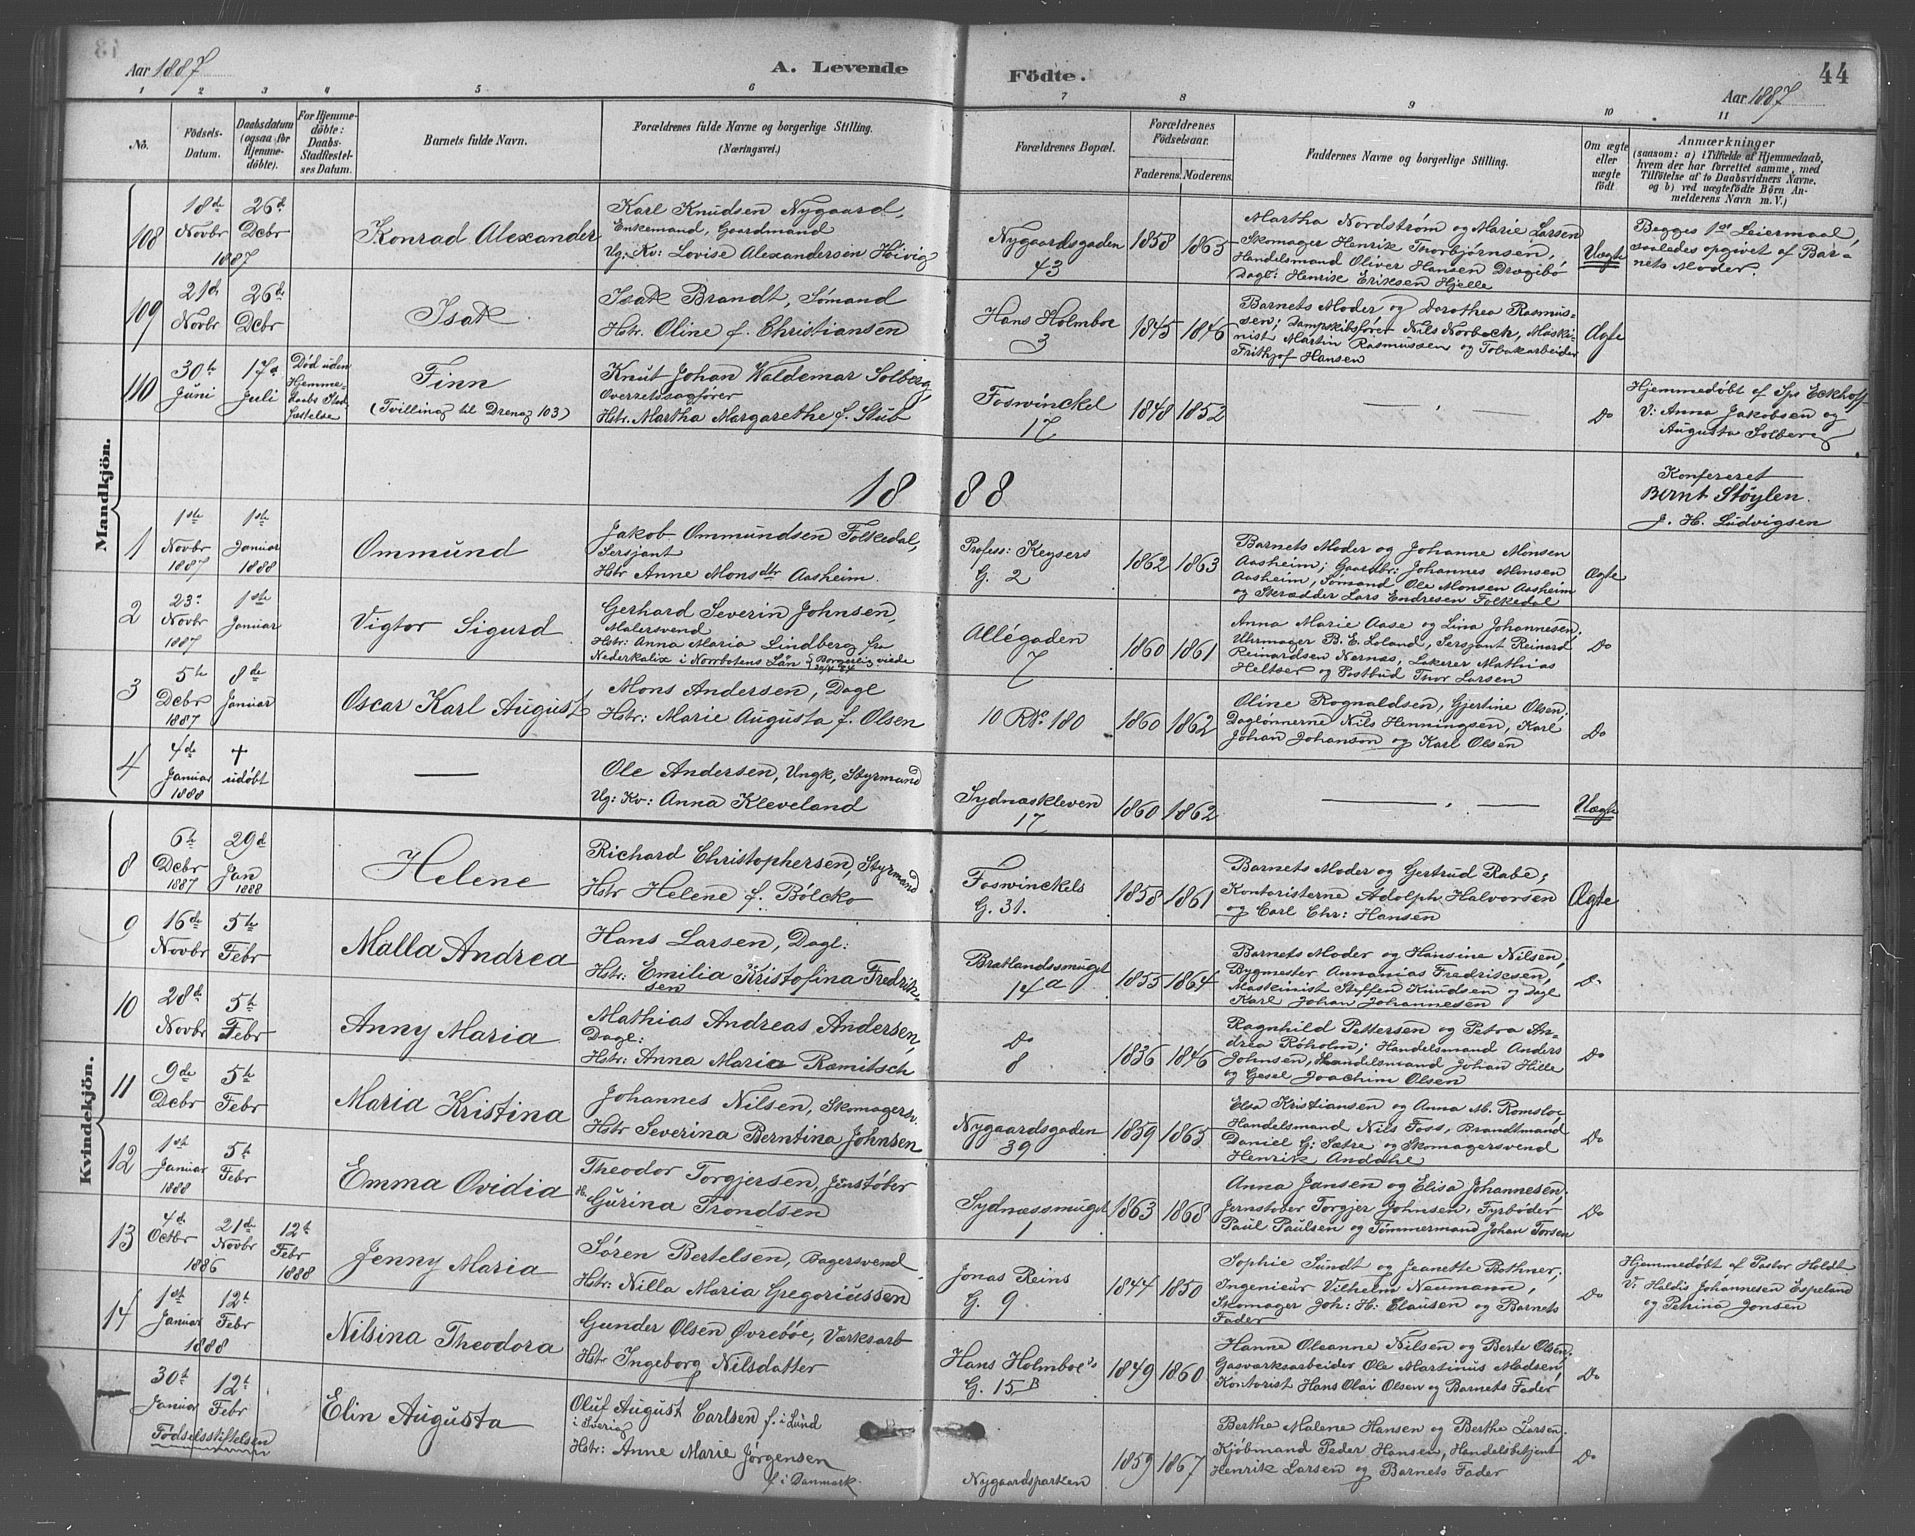 Aar 1887
A. Levende
Födte.
44
Aar 1887
1 2 3 4 5 6 7 8 9 10 11
No.
Födsels-
Datum.
Daabsdatum
(ogsaa for
Hjemme-
döbte).
For Hjemme-
döbte:
Daabs-
Stadfæstel-
ses Datum.
Barnets fulde Navn.
Forældrenes fulde Navne og borgerlige Stilling.
(Næringsvei.)
Forældrenes Bopæl.
Forældrenes
Födselsaar.
Faderens. Moderens.
Faddernes Navne og borgerlige Stilling.
Om ægte
eller
uægte
födt
Anmærkninger
(saasom: a) i Tilfælde af Hjemmedaab,
hvem der har forrettet samme, med
Tilföielse af to Daabsvidners Navne,
og b) ved uægtefödte Börn An-
melderens Navn m. V.)
Mandkjön.
108
18de
Novbr
1887
26d
Dcbr
Konrad Alexander
Karl Knudsen Nygaard,
Enkemand, Gaardmand
Ug: Kv: Lovise Alexandersen Höivig
Nygaardsgaden
43
1858 1865
Martha Nordstrøm og Marie Larsen
Skomager Henrik Thorbjørnsen,
Handelsmand Oliver Hansen Drægibö
Dagl: Henrik Eriksen Hjelle
Uægte
Begges 1ste Leiermaal,
saaledes opgivet af Bar-
nets Moder.
109
21d
Novbr
26d
Dcbr
Isak
Isak Brandt, Sømand
Hstr. Oline f. Christiansen
Hans Holmboe
3
1845 1846
Barnets Moder og Dorothea Rasmus-
sen; Dampskibsfører Nils Norbeck, Maski-
nist Martin Rasmussen og Tobakarbeider
Frithjof Hansen
Ægte
110
30te
Juni
17d
Juli
Död uden
Hjemme-
daabs Stad-
fæstelse
Finn
(Tvilling til Dreng 103)
Knut Johan Waldemar Solberg,
Overretssagfører
Hstr. Martha Margarethe f. Stub
Foswinckel
17
1848 1852
Do
Hjemmedøbt af Sps Eckhoff
V: Anna Jakobsen og
Augusta Solberg
1888
Konfereret
Bernt Støylen.
J. H. Ludvigsen
1
1ste
Novbr
1887
1ste
Januar
1888
Ommund
Jakob Ommundsen Folkedal,
Sersjant
Hstr Anne Monsdtr Aasheim.
Profess: Keysers
G. 2
1862 1863
Barnets Moder og Johanne Monsen
Aasheim; Gaardbr: Johannes Monsen
Aasheim, Sømand Ole Monsen Aasheim
og Skrædder Lars Endresen Folkedal
Ægte
2
23de
Novbr
1887
1ste
Januar
Vigtor Sigurd
Gerhard Severin Johnsen,
Malersvend
Hstr: Anna Maria Lindberg fra
Nederkalix i Norrbotens Län Borgerlig viede
Allégaden
7
1860 1861
Anna Marie Aase og Lina Johannesen;
Uhrmager B. E. Loland, Sersjant Reinard
Reinardsen Nernæs, Lakerer Mathias
Heltser og Postbud Thor Larsen
Do
3
5te
Dcbr
1887
8de
Januar
Oscar Karl August
Mons Andersen, Dagl
Hstr: Marie Augusta f. Olsen
10 Rde. 180
1860 1862
Oline Rognaldsen, Gjertine Olsen,
Daglønnerne Nils Henningsen, Karl
Johan Johanson og Karl Olsen
Do
4
4de
Januar
1888
†
udöbt
Ole Andersen, Ungk, Styrmand
Ug: Kv: Anna Kleveland
Sydnæskleven
17
1860 1862
Uægte
Kvindekjön.
8
6te
Dcbr
1887
29d
Jan
1888
Helene
Richard Christophersen, Styrmand
Hstr Helene f. Bölcko
Foswinckels
G. 31.
1858 1861
Barnets Moder og Gertrud Rabe;
Kontoristerne Adolph Halvorsen
og Carl Chr: Hansen
Ægte
9
16de
Novbr
5te
Febr
Malla Andrea
Hans Larsen, Dagl:
Hstr: Emilia Kristofina Fredrik-
sen
Bratlandssmuget
14a
1855 1864
Barnets Moder og Hansine Nilsen;
Bygmester Annanias Fredriksen,
Maskinist Steffen Knudsen og Dagl
Karl Johan Johannesen
Do
10
28de
Novbr
5te
Febr
Anny Maria
Mathias Andreas Andersen,
Dagl:
Hstr: Anna Maria Ramitsch
Do
8
1836 1846
Ragnhild Pettersen og Petra An-
drea Røholm; Handelsmand Anders
Johnsen, Handelsmand Johan Hille
og Gesel Joachim Olsen
Do
11
9de
Dcbr
5te
Febr
Maria Kristina
Johannes Nilsen, Skomagersv.
Hstr Severina Berntina Johnsen
Nygaardsgaden
39
1859 1865
Elsa Kristiansen og Anna M. Romsloe
Handelsmand Nils Foss, Brandtmand
Daniel G: Sætre og Skomagersvend
Henrik Andahl
Do
12
1st
Januar
1888
5te
Febr
Emma Ovidia
Theodor Torgjersen, Jernstøber
H. Gurina Trondsen
Sydnæssmuget
1
1863 1868
Anna Jansen og Elisa Johannesen;
Jernstøber Torgjer Johnsen, Fyrbøder
Paul Paulsen og Tømmermand Johan Torsen
Do
13
4d
Octbr
1886
21de
Novbr
12te
Febr
1888
Jenny Maria
Søren Bertelsen, Bagersvend
Hstr: Nilla Maria Gregoriussen
Jonas Reins
G. 9
1844 1850
Sophie Sundt og Jeanette Bothner;
Ingenieur Vilhelm Naumann,
Skomager Joh: H: Clausen og Barnets
Fader
Do
Hjemmedøbt af Pastor Holdt
V: Haldis Johannesen Espeland
og Petrina Jonsen
14
1st
Januar
1888
12te
Febr
Nilsina Theodora
Gunder Olsen Øvrebøe, Værksarb
Hstr Ingeborg Nilsdatter
Hans Holmboe's
G. 15B
1849 1860
Hanne Oleanne Nilsen og Berte Olsen;
Gasværksarbeider Ole Martinus Madsen,
Kontorist Hans Olai Olsen og Barnets Fader
Do
30te
Januar
12te
Febr
Födselsstiftelsen
Elin Augusta
Oluf August Carlsen f. i Lund
i Sverig
Hstr: Anne Marie Jørgensen
f. i Danmark.
Nygaardsparken
1859 1867
Berthe Malene Hansen og Berthe Larsen;
Kjöbmand Peder Hansen, Handelsbetjent
Henrik Larsen og Barnets Fader
Do